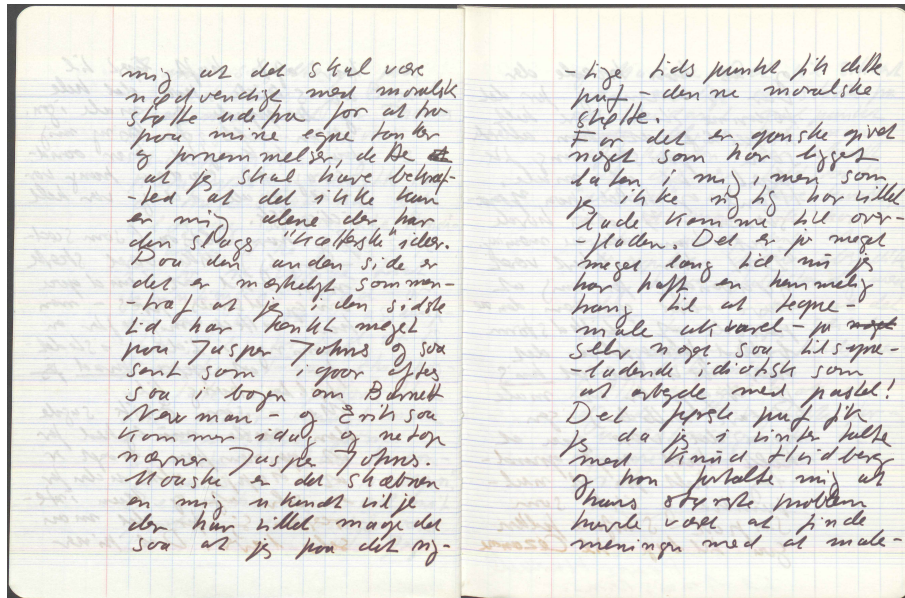 mig at det skal være
nødvendigt med moralsk
støtte udefra for at tro
paa mine egne tanker
og fornemmelser, dette
at jeg skal have bekræf-
-ted at det ikke kun
er mig alene der har
den slags "kætterske" ideer.
Paa den anden side er
det er mærkeligt sammen-
-træf at jeg i den sidste
tid har tænkt meget
paa Jasper Johns og saa
sent som igaar aftes
saa i bogen om Barnett
Newman - og Erik saa
kommer idag og netop
nævner Jasper Johns.
Maaske er det skæbnen
en mig ukendt vilje
der har villet mage det
saa at jeg paa det rig-
-tige tidspunkt fik dette
puf - denne moralske
støtte.
For det er ganske givet
noget som har ligget
latent i mig, men som
jeg ikke rigtig har villet
lade komme til over-
-fladen. Det er jo meget
meget lang tid nu jeg
har haft en hemmelig
trang til at tegne-
male akvarel - ja
selv noget saa tilsyne-
-ladende idiotisk som
at arbejde med pastel!
Det første puf fik
jeg da jeg i vinter talte
med Knud Hvidberg
og han fortalte mig at
hans største problem
havde været at finde
meningen med at male-